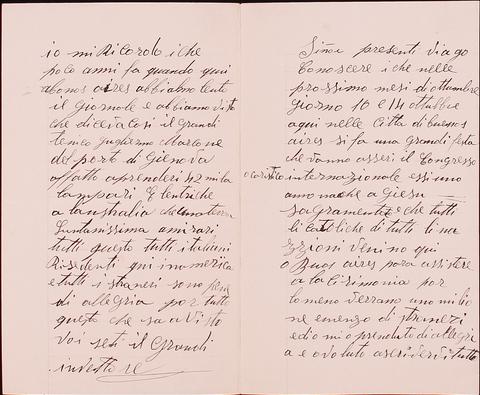 io mi Ricordo i che
poco anni fa quando qui
abonos aires abbiamo leuto
il Giornale e abbiamo visto
che diceva Cosi il Grandi
tenico Guglermo Marcone
del porto di Gienova
affatto aprenderi 42 mila
lampari Elentriche
a laustralia che una terra
luntanissima amirari,
tutti questo tutti italiani
Risidenti qui inamerica
e tutti i straneri sono piene
di allegria por tutti
questo che sa a visto
voi seti il Grandi
inventore
Sinor presenti viago
Conoscere i che nelle
prossimo mesi di ottumbre
giorno 10 e 14 ottubbre
aqui nelle Citta di buenos
aires si fa una grandi festa
che vanno asseri il Congresso
ocaristico internazionale essi uno
a Giesu
sagramentato e che tutti
li Catoliche di tutti li na
zzioni venino qui
a Buos aires para assistere
por
lomeno verrano uno milio
ne emenzo di stranezi
ed io mi o prenduto di allegri
a e o voluto ascrivervi tutto